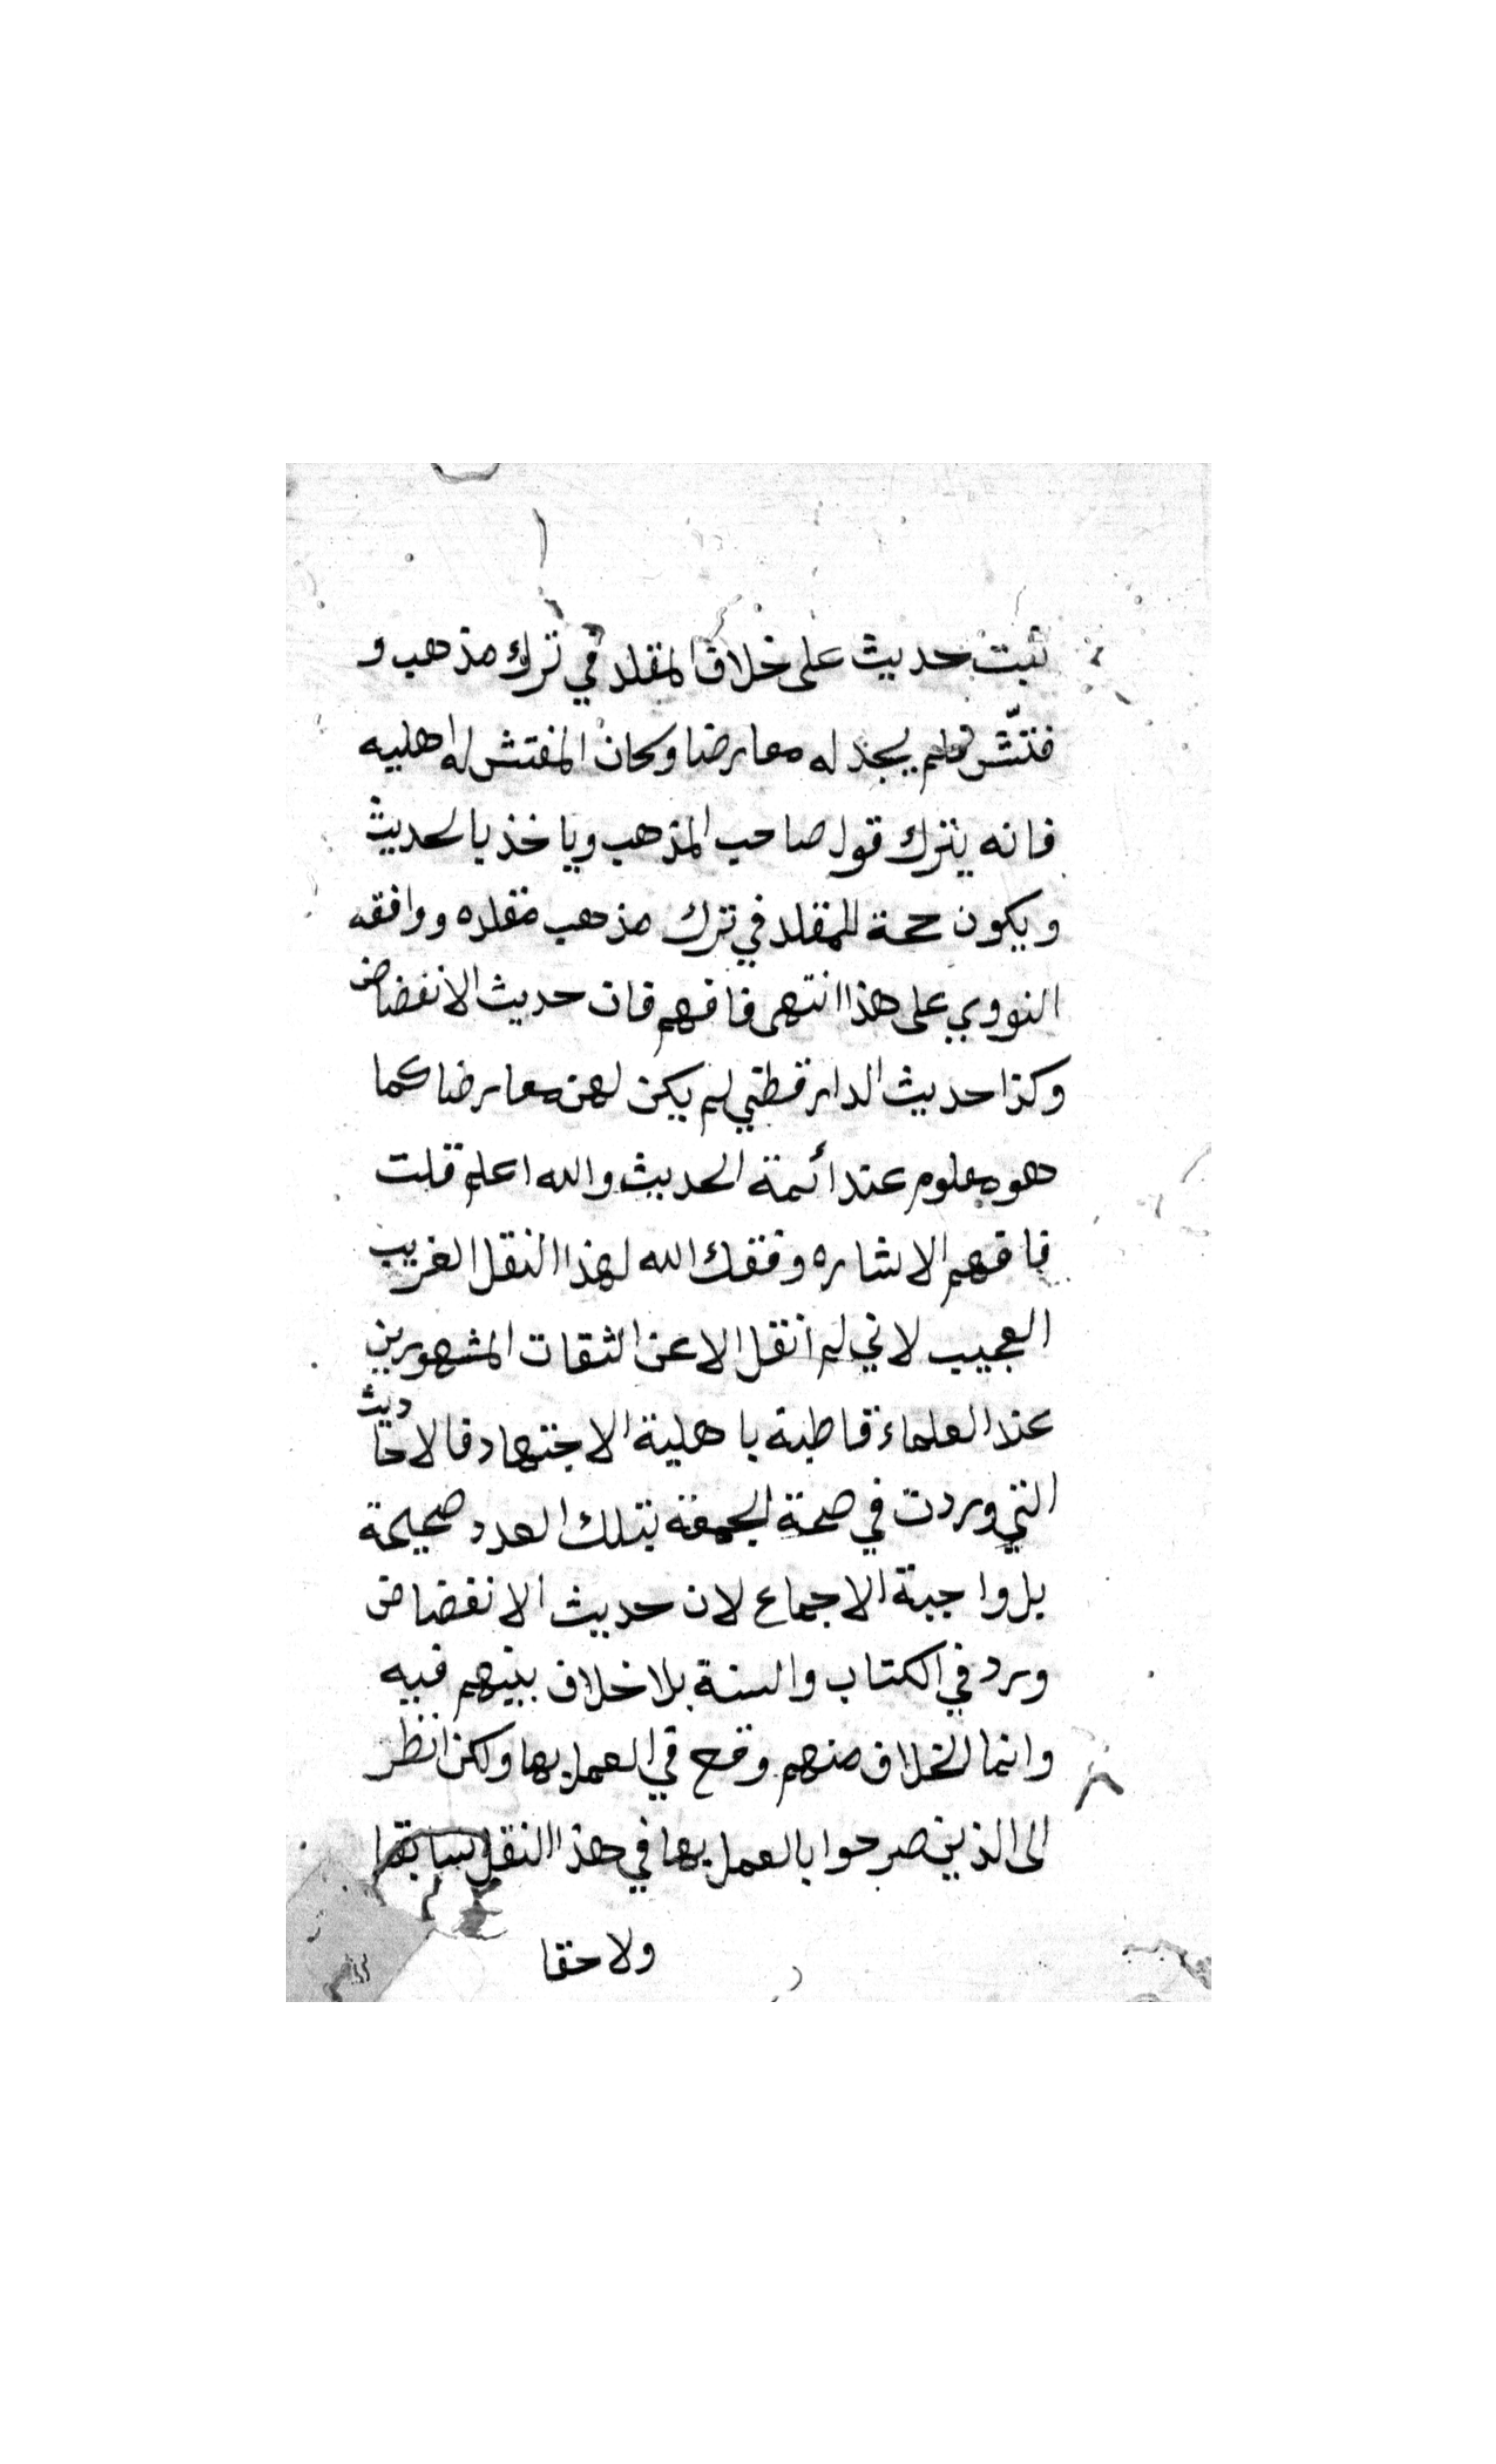 ثبت حديث على خلاف المقلد في ترك مذهب و
فتّش فلم يجد له معارضا وكان المفتش له اهليه
فانه يترك قول صاحب المذهب وياخذ بالحديث
ويكون حجة للمقلد في ترك مذهب مقلده ووافقه
النووي على هذا انتهى فافهم فان حديث الانفضاض
وكذا حديث الدارقطني لم يكن لهن معارضا كما
هو معلوم عند أئمة الحديث والله اعلم قلت
فافهم الاشاره وفقك الله لهذا النقل الغريب
العجيب لاني لم انقل الا عن الثقات المشهورين
عند العلماء قاطبة باهلية الاجتهاد فالاحاديث
التي وردت في صحة الجمعة بتلك العدد صحيحة
بل واجبة الاجماع لان حديث الانفضاض
ورد في الكتاب والسنة بلا خلاف بينهم فيه
وانما الخلاف منهم وقع في العمل بها ولكن انظر
الى الذين صرحوا بالعمل بها في هذا النقل سابقا
ولاحقا